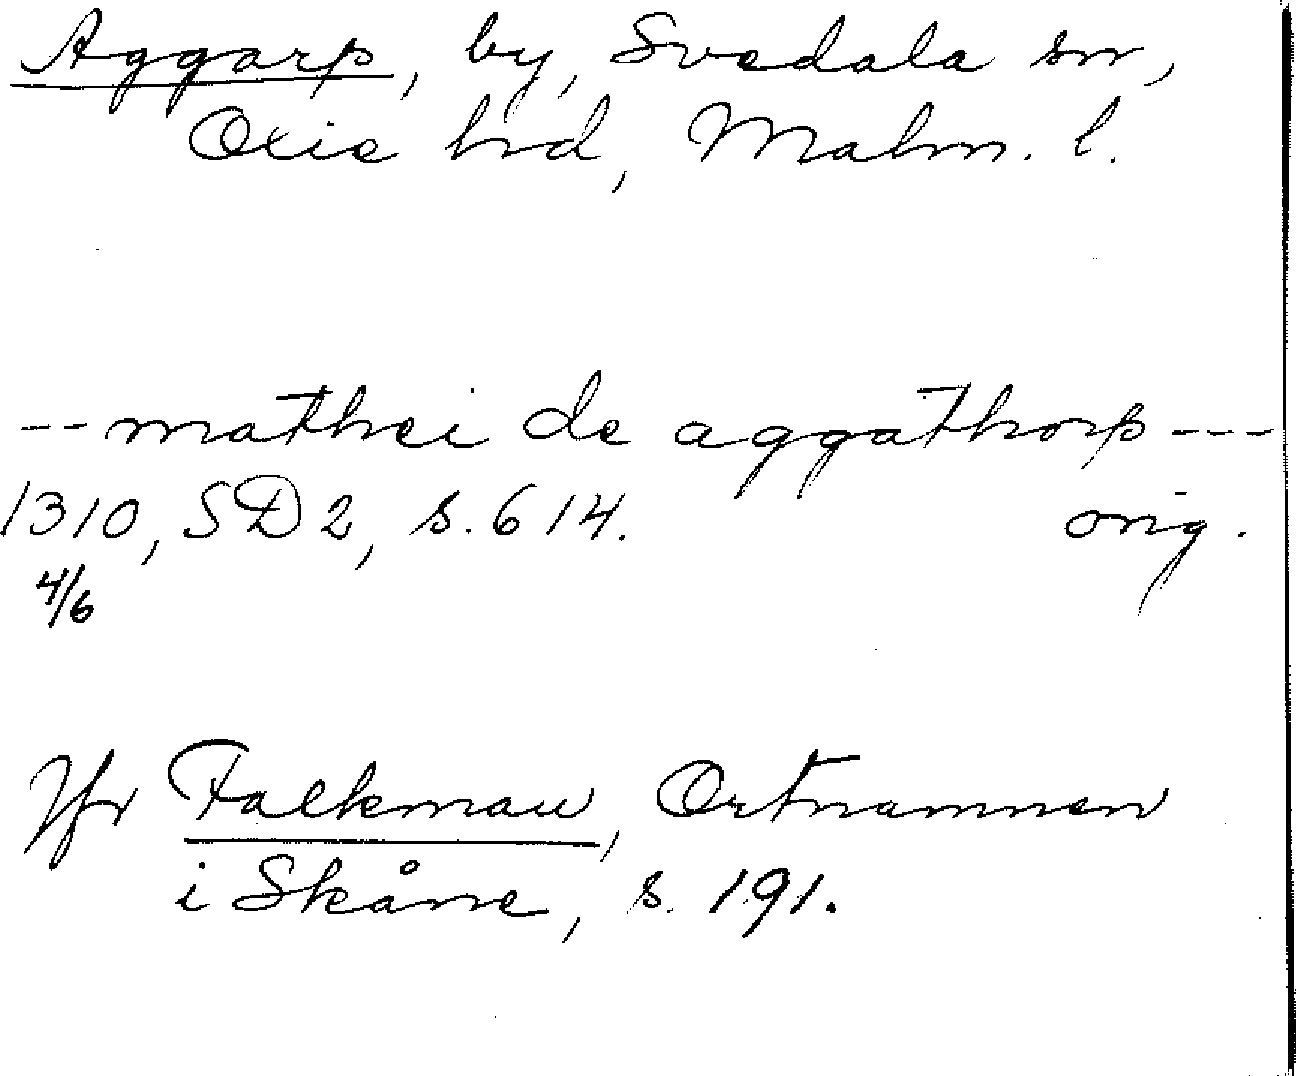 Aggarp, by, Svedala sn,
Oxie hd, Malm. l.
-- mathei de aggathorp ---
1310, SD 2, s. 614. orig.
4/6
Jfr Falkman, Ortnamnen
i Skåne, s. 191.